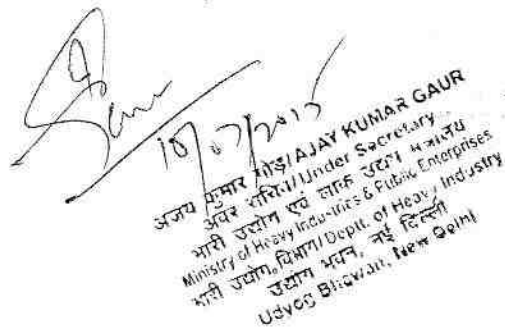 10/07/2015
अजय कुमार गौड़/AJAY KUMAR GAUR
अवर सचिव/Under Secretary
भारी उद्योग एवं लोक उद्यम मंत्रालय
Ministry of Heavy Industries & Public Enterprises
भारी उद्योग विभाग/Deptt. of Heavy Industry
उद्योग भवन, नई दिल्ली
Udyog Bhawan, New Delhi